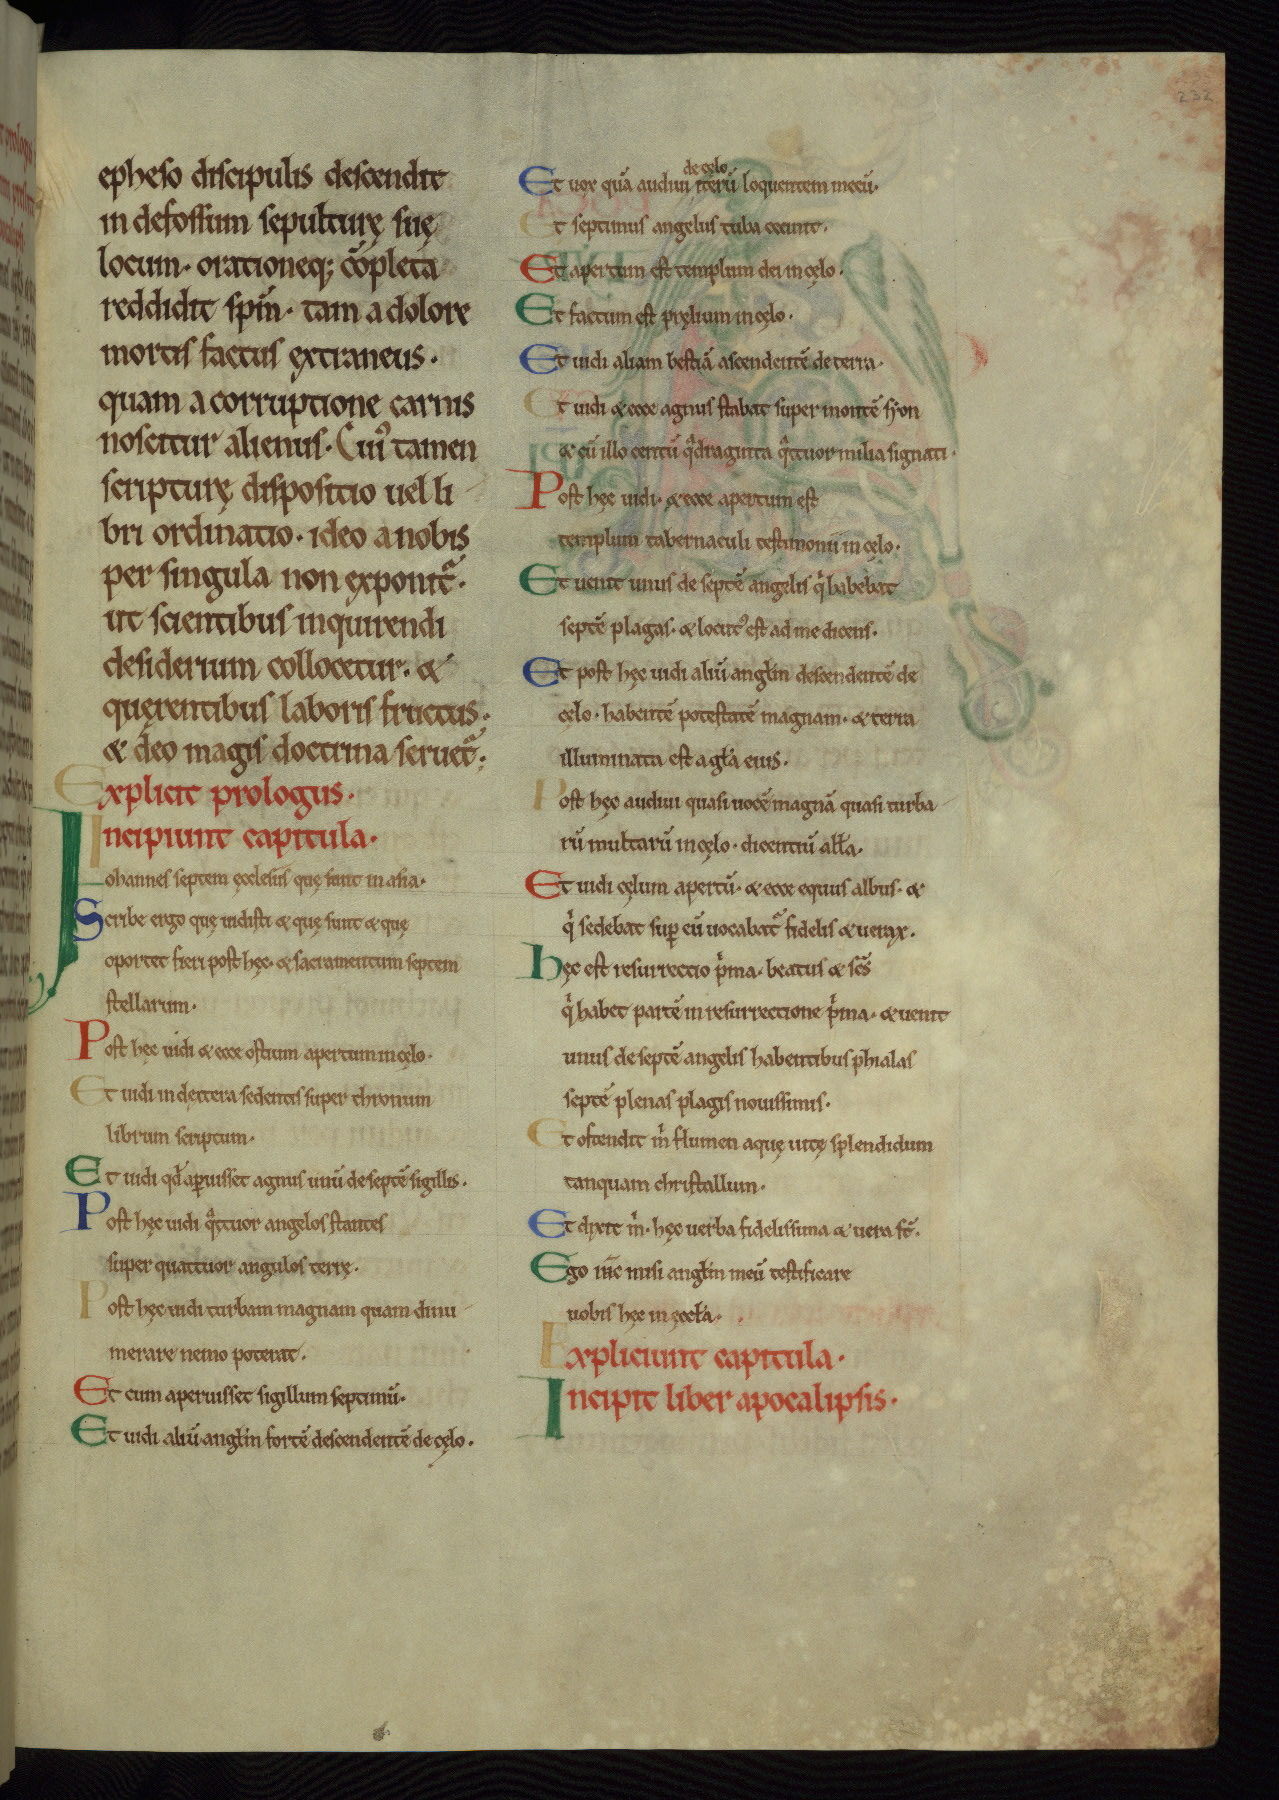 epheso discipulis descendit
in defossum sepulturę suę
locum· orationeq; cōpleta
reddidit sp̄m· tam a dolore
mortis factus extraneus·
quam a corruptione carnis
noscitur alienus· Cui᷒ tamen
scripturę dispositio uel li
bri ordinatio· ideo a nobis
per singula non exponit᷑·
ut scientibus inquirendi
desiderium collocetur· &
querentibus laboris fructus·
& deo magis doctrina seruet᷑;
Explicit prologus·
Incipiunt capitula·
Iohannes septem ęcclesiis quę sunt in asia·
Scribe ergo quę uidisti & quę sunt & quę
oportet fieri post hęc· & sacramentum septem
stellarum·
Post hęc uidi & ecce ostium apertum in cęlo·
Et uidi in dextera sedentis super thronum
librum scriptum·
Et uidi qđ aꝑuisset agnus unū de septē sigillis·
Post hęc uidi qͣttuor angelos stantes
super quattuor angulos terrę·
Post hęc uidi turbam magnam quam dinu
merare nemo poterat·
Et cum aperuisset sigillum septimū·
Et uidi aliū angl̄m fortē descendentē de cęlo·
de cęlo
Et uox quā audiui iterū loquentem mecū·
Et septimus angelus tuba cecinit·
Et apertum est templum dei in cęlo·
Et factum est pręlium in cęlo·
Et uidi aliam bestiā ascendentē de terra·
Et uidi & ecce agnus stabat super montē syon
& cū illo centū qͣdraginta qͣttuor milia signati·
Post hęc uidi· & ecce apertum est
templum tabernaculi testimonii in cęlo·
Et uenit unus de septē angelis qͥ habebat
septē plagas· & locut᷒ est ad me dicens·
Et post hęc uidi aliū angl̄m descendentē de
cęlo· habentē potestatē magnam· & terra
illuminata est a gl̄a eius·
Post hęc audiui quasi uocē magnā quasi turba
rū multarū in cęlo· dicentiū all̄a·
Et uidi cęlum apertū· & ecce equus albus· &
qͥ sedebat suꝑ eū uocabat᷑ fidelis & uerax.
Hęc est resurrectio pͥma· beatus & sc̄s
qͥ habet partē in resurrectione pͥma· & uenit
unus de septē angelis habentibus phialas
septē plenas plagis nouissimis·
Et ostendit m̄ flumen aquę uitę splendidum
tanquam christallum·
Et dixit m̄· hęc uerba fidelissima & uera st̄·
Ego ih̄c misi angl̄m meū testificare
uobis hęc in ęccl̄a·
Expliciunt capitula·
Incipit liber apocalipsis·
232